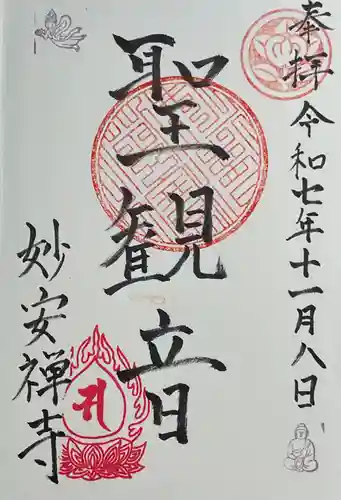 奉拝 令和七年十一月八日
聖観音
妙安禅寺